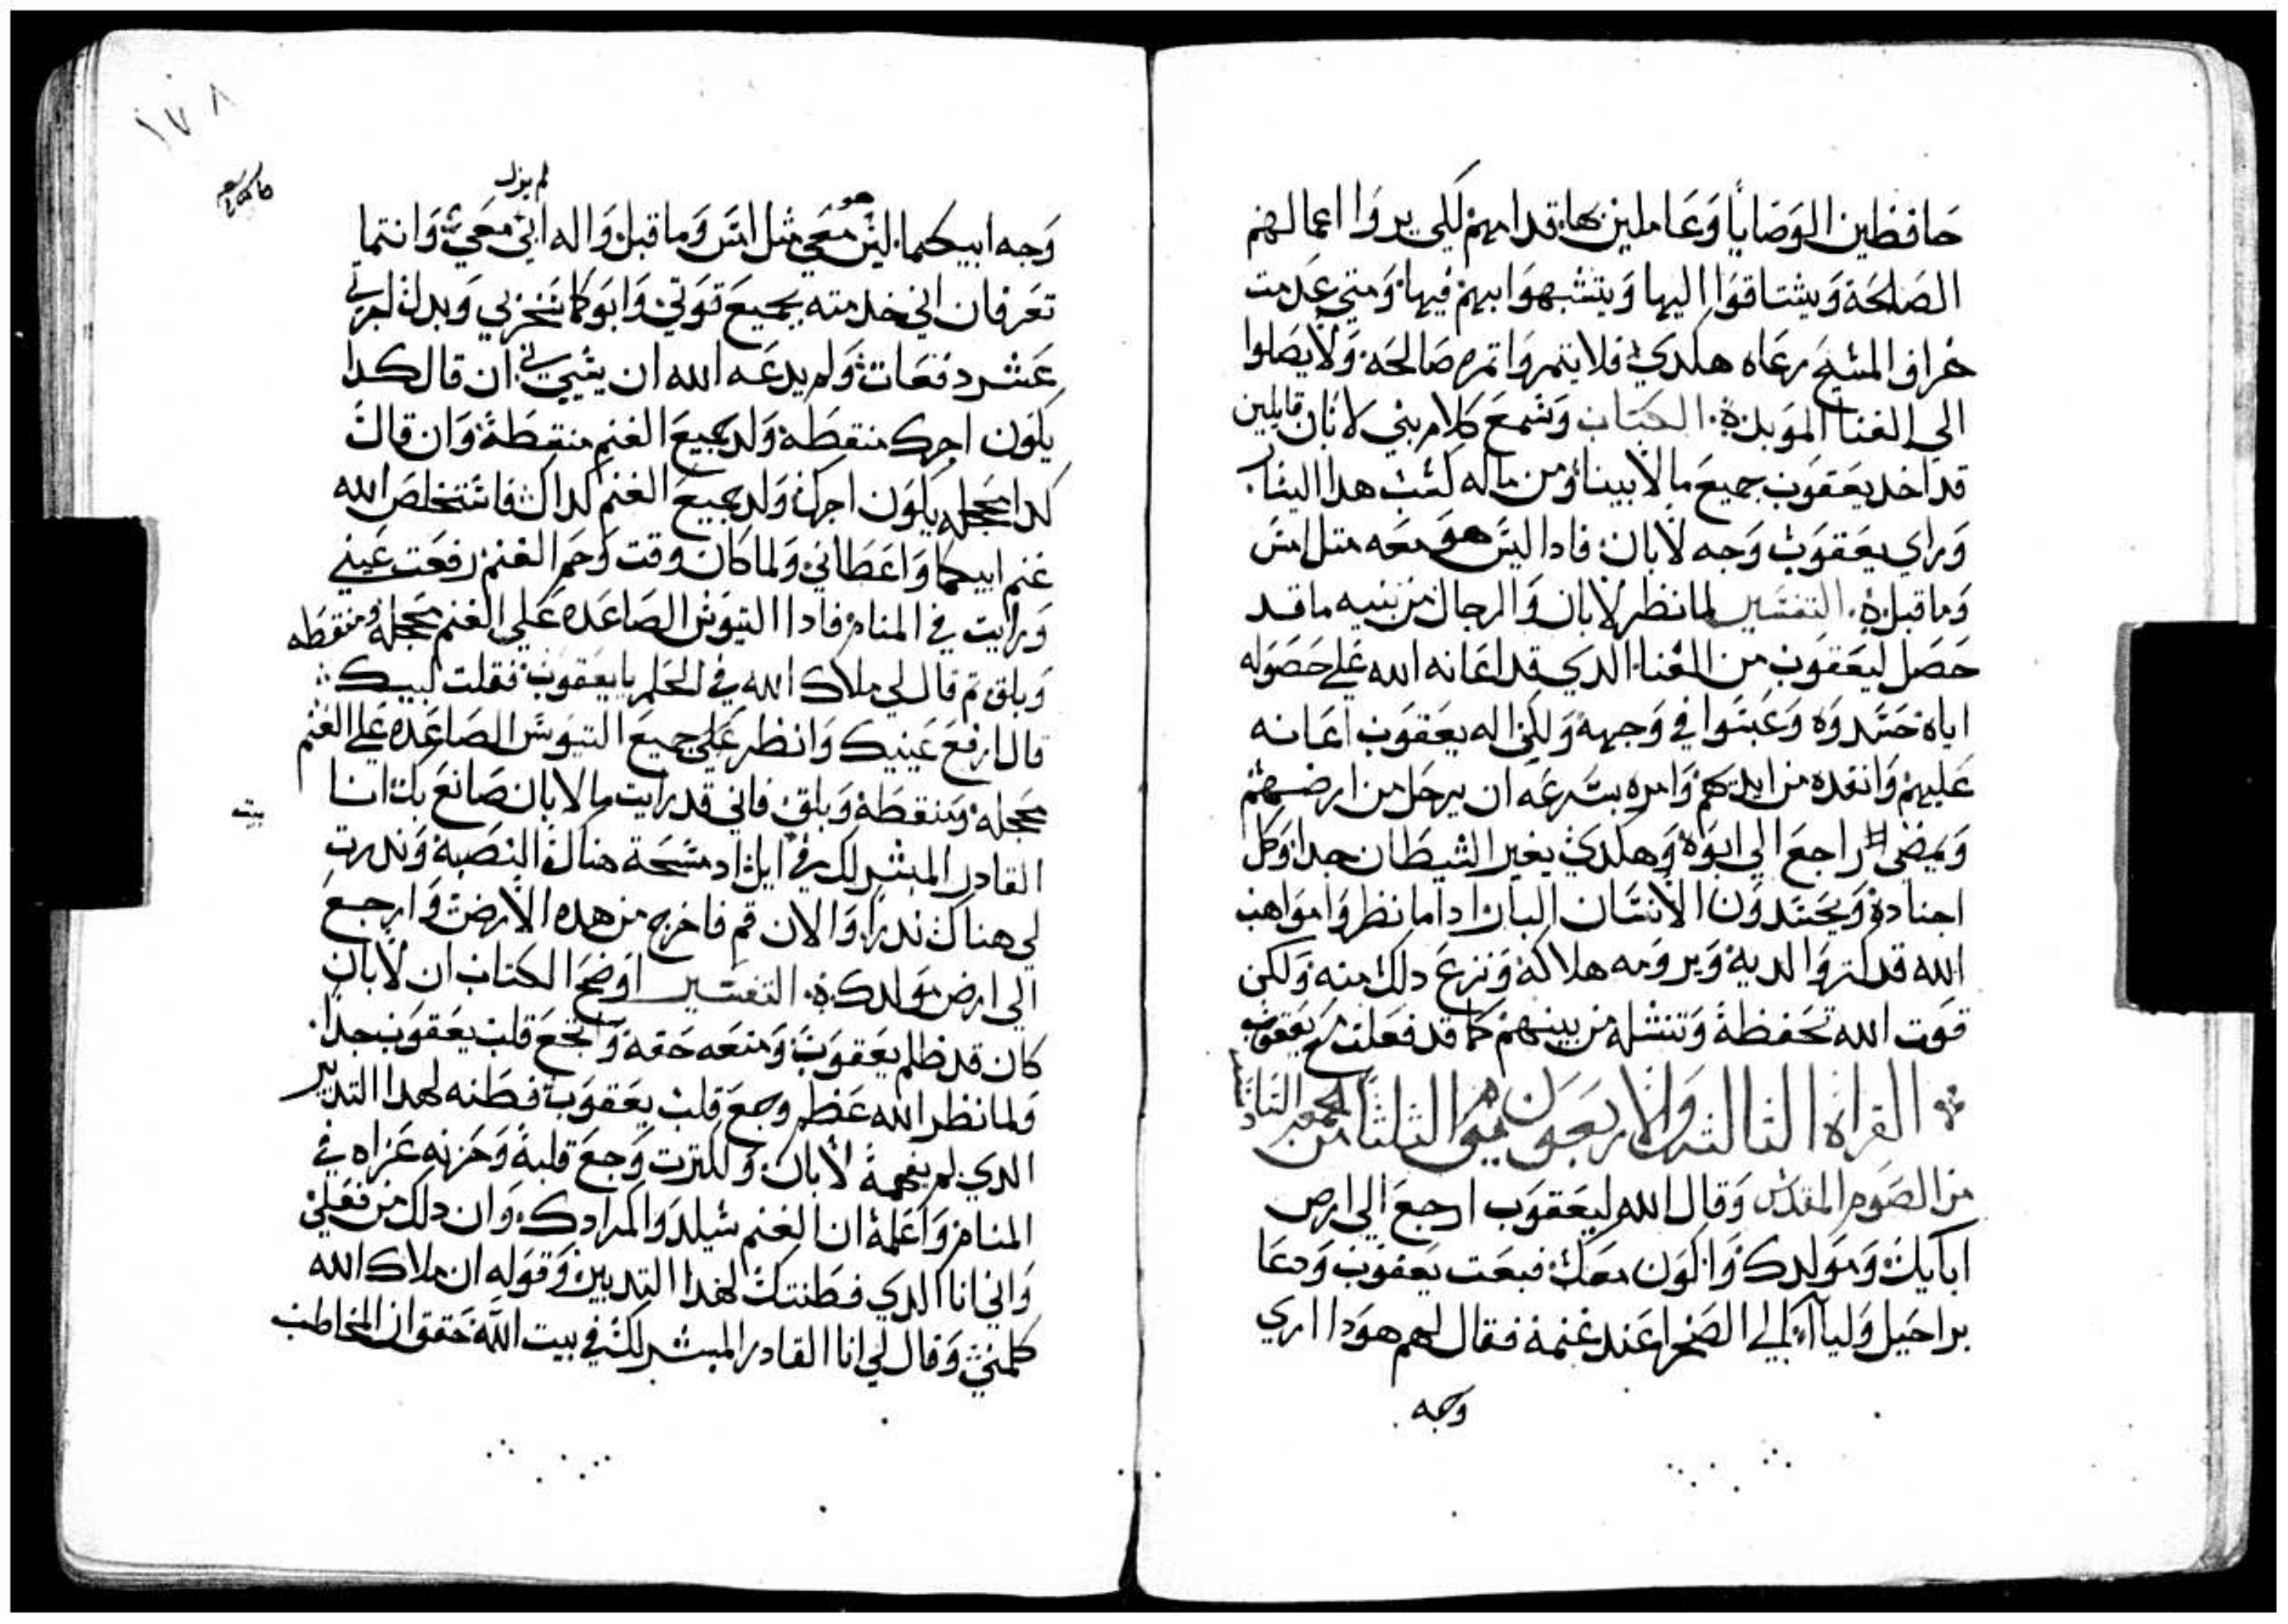 حافظين الوصايا وعاملين بها قدامهم لكي يروا اعمالهم
الصالحة ويشتاقوا اليها ويتشبهوا بهم فيها ومتي عدمت
خراف المسيح رعاه هكدي فلا يتمروا تمره صالحه ولا يصلوا
الي الغنا الموبد الكتاب وسمع كلام بني لابان قايلين
قد اخد يعقوب جميع ما لابينا ومن ماله كسب هدا اليسار
وراي يعقوب وجه لابان فادا ليس هو معه متل امس
وما قبل التفسير لما نظر لابان والرجال من بنيه ما قد
حصل ليعقوب من الغنا الدي قد اعانه الله علي حصوله
اياه حسدوه وعبسوا في وجهه ولكن اله يعقوب اعانه
عليهم وانقده من ايديهم وامره بسرعه ان يرحل من ارضهم
ويمضي راجع الي ابوه وهكدي يغير الشيطان جدا وكل
اجناده ويحسدون الانسان البار ادا ما نظروا مواهب
الله قد كتروا لديه ويرومه هلاكه ونزع دلك منه ولكن
قوت الله تحفظه وتنشله من بينهم كما قد فعلت مع يعقوب
القراه التالته والاربعون من التلتا من الجمعه
من الصوم المقدس وقال الله ليعقوب ارجع الي ارض
ابايك ومولدك واكون معك فبعت يعقوب ودعا
براحيل ولياا الي الصحرا عند غنمه فقال لهم هودا اري
وجه
١٧٨
لم يزل
هو
وجه ابيكما ليس معي متل امس وما قبل واله ابي معي وانتما
تعرفان اني خدمته بجميع قوتي وابوكما سخر بي وبدل اجرتي
عشر دفعات ولم يدعه الله ان يسي اني ان قال كدا
يكون اجرك منقطه ولد جميع الغنم منقطة وان قال
كدا محجله يكون اجرك ولد جميع الغنم كداك فاستخلص الله
غنم ابيكما واعطاني ولما كان وقت وحم الغنم رفعت عيني
ورايت في المنام فادا التيوس الصاعده علي الغنم محجله ومنقطه
وبلق تم قال لي ملاك الله في الحلم يا يعقوب فقلت لبيك
قال ارفع عينيك وانظر علي جميع التيوس الصاعده علي الغنم
محجله ومنقطة وبلق فاني قد رايت ما لابان صانع بك انا
بيت
القادر المبشر لك في ايل اد مسحة هناك النصبة وندرت
لي هناك ندرا والان قم فاخرج من هده الارض وارجع
الي ارض مولدك التفسير اوضح الكتاب ان لابان
كان قد ظلم يعقوب ومنعه حقه واتجع قلب يعقوب جدا
ولما نظر الله عظم وجع قلب يعقوب فطنه لهدا التدبير
الدي لم يفهمه لابان ولكترت وجع قلبه وحزنه عزاه في
المنام واعلمه ان الغنم سيلد والمرادك وان دلك من فعلي
واني انا الدي فطنتك لهدا التدبير وقوله ان ملاك الله
كلمني وقال لي انا القادر المبشر لك في بيت الله حقق ان المخاطب